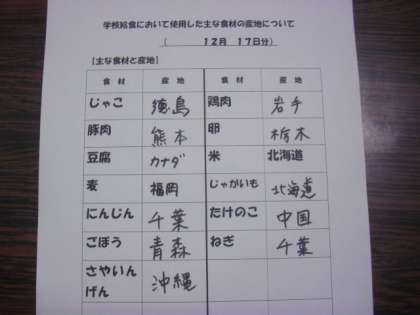 学校給食において使用した主な食材の産地について
( 12月 17日分)
【主な食材と産地】
食材 産地 食材 産地
じゃこ 徳島 鶏肉 岩手
豚肉 熊本 卵 栃木
豆腐 カナダ 米 北海道
麦 福岡 じゃがいも 北海道
にんじん 千葉 たけのこ 中国
ごぼう 青森 ねぎ 千葉
さやいん
げん 沖縄